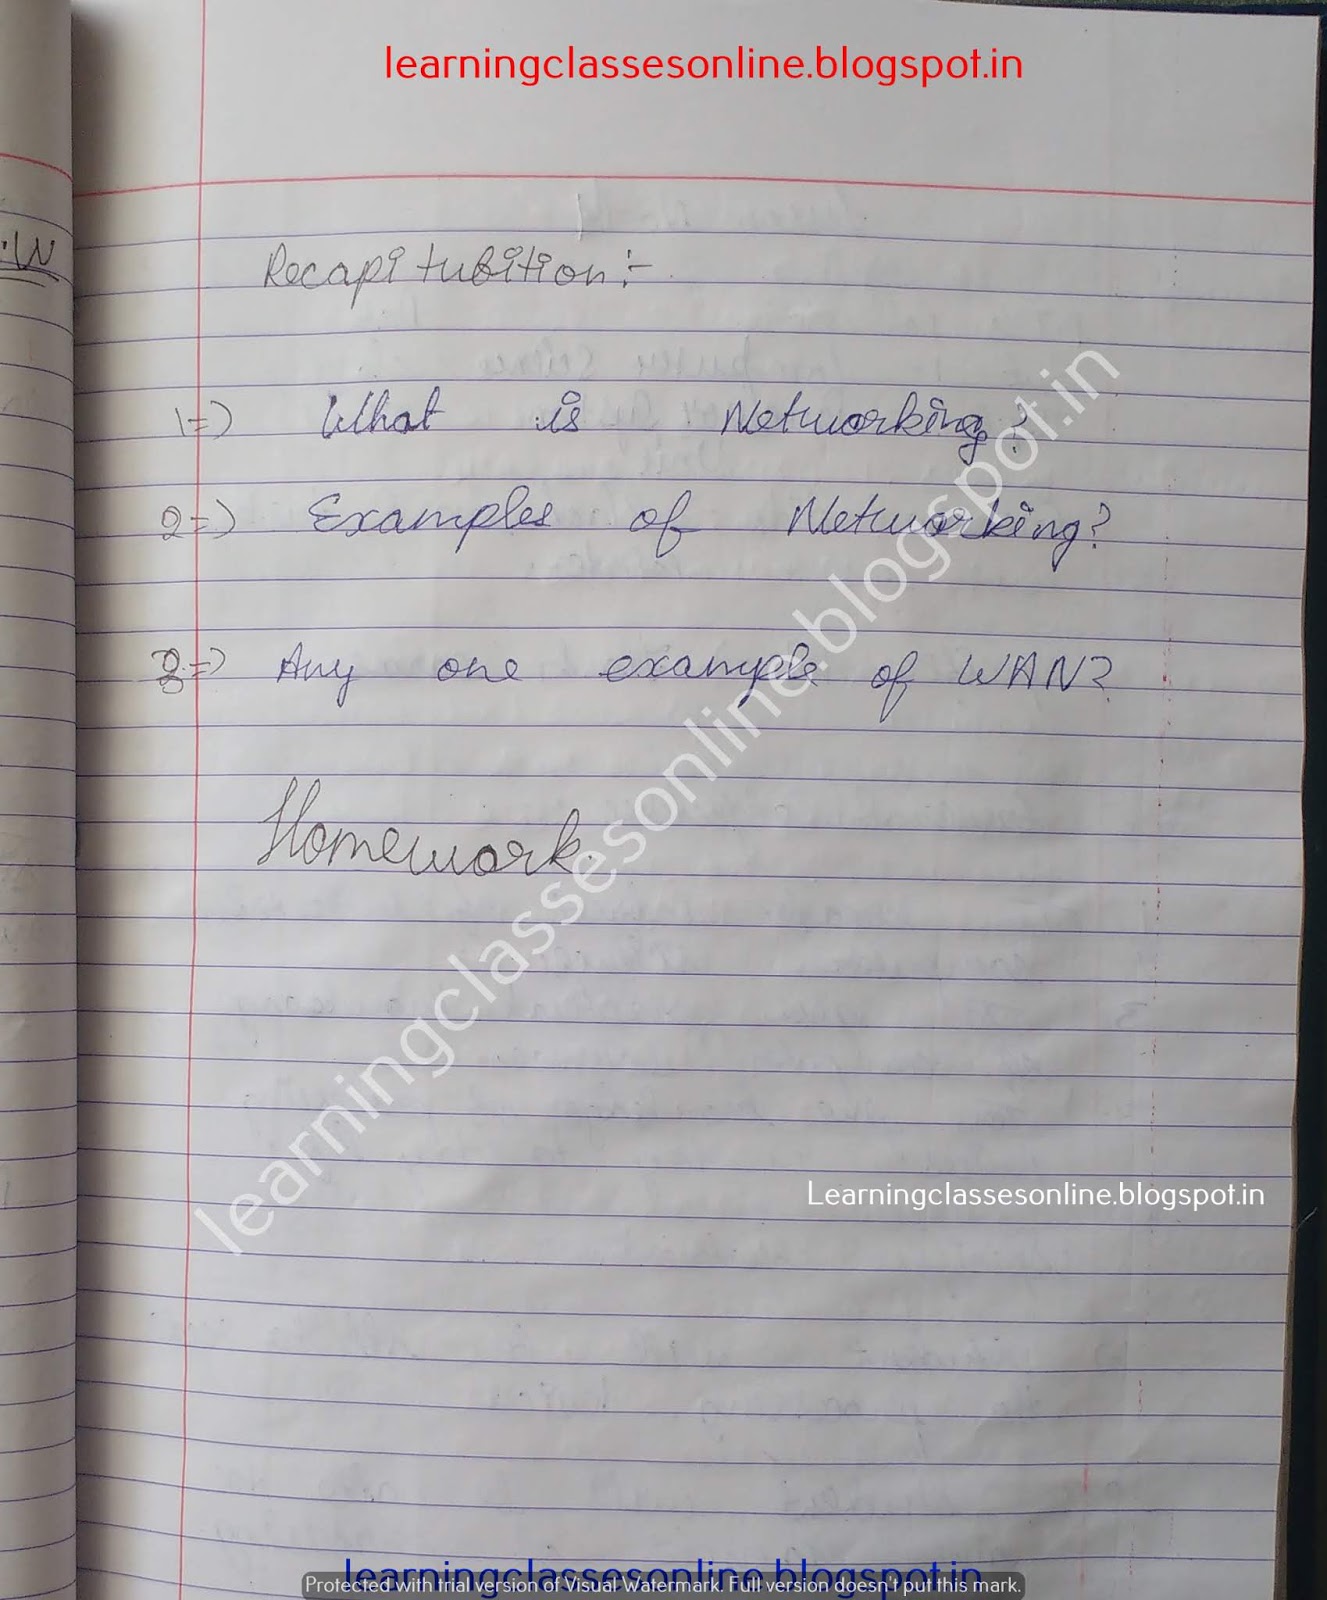 learningclassesonline.blogspot.in
.W
Recapitubition :-
1=) What is Networking?
2=) Examples of Networking?
3=) Any one example of WAN?
Homework.
learningclassesonline.blogspot.in
Learningclassesonline.blogspot.in
learningclassesonline.blogspot.in
Protected with trial version of Visual Watermark. Full version doesn't put this mark.